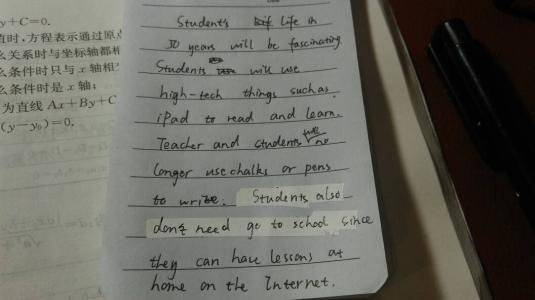 y+C=0.
直时,方程表示通过原点
么关系时与坐标轴都相
么条件时只与x轴相交
么条件时是x轴;
为直线Ax+By+C
(y-y₀)=0.
Students life in
30 years will be fascinating
Students will use
high-tech things such as
iPad to read and learn.
Teacher and students will no
longer use chalks or pens
to write. Students also
don't need go to school since
they can have lessons at
home on the Internet.